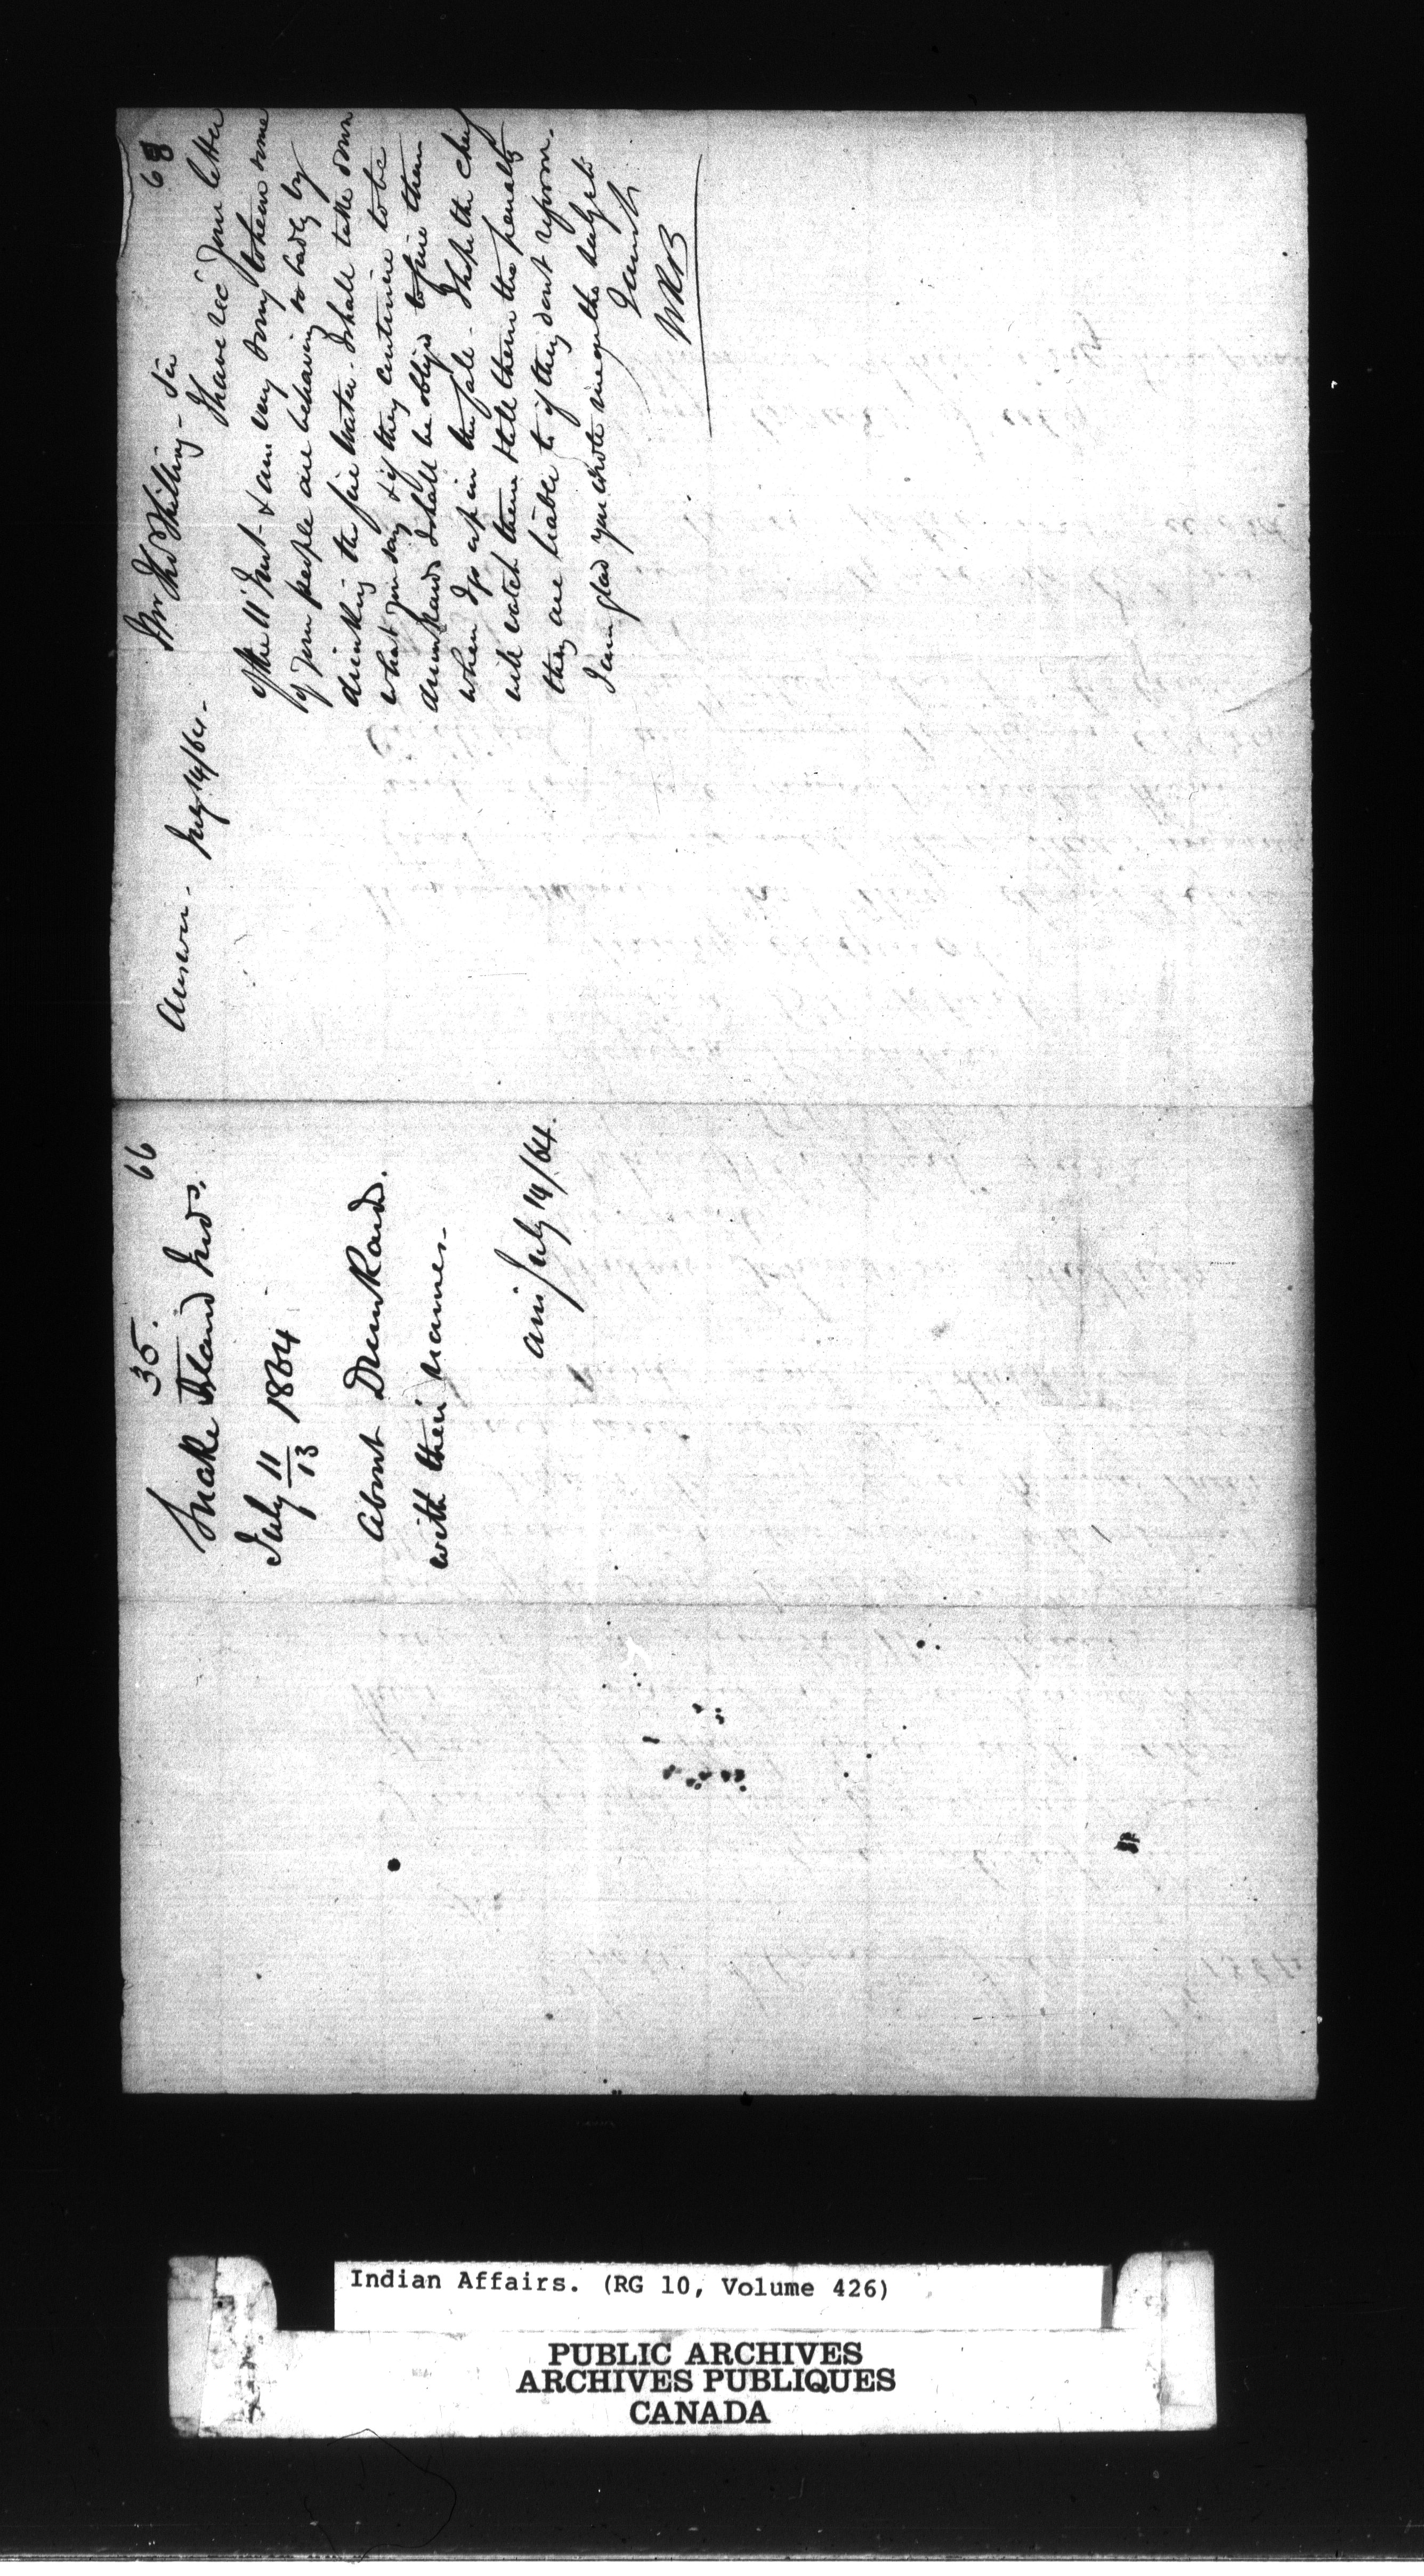 35. 66
Snake Island Inds.
July 11/13 1864
About Drunkards.
with their names.
ans July 14/64.
68
Answer. July 14/64.
Mr Thos Shilling - Sir
I have recd your letter
of the 11th Inst & am very sorry to hear some
of your people are behaving so badly by
drinking the fire water. I shall take down
what you say & if they continue to be
drunkards I shall be obliged to fine them
when I go up in the fall. I hope the chief
will watch them & tell them the penalty
they are liable to if they dont reform.
I am glad you wrote me
Yours
WRB
Indian Affairs. (RG 10, Volume 426)
PUBLIC ARCHIVES
ARCHIVES PUBLIQUES
CANADA